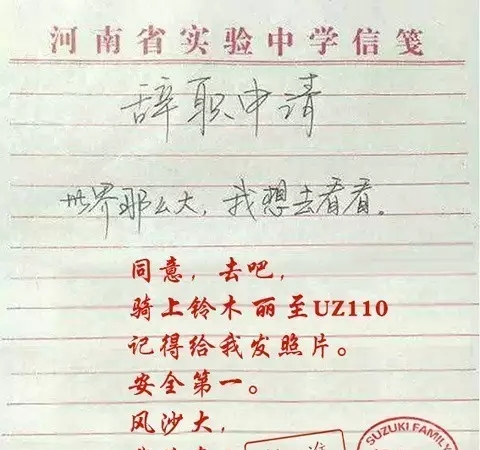 河南省实验中学信笺
辞职申请
世界那么大，我想去看看。
同意，去吧，
骑上铃木丽至UZ110
记得给我发照片。
安全第一。
风沙大，
SUZUKI FAMILY